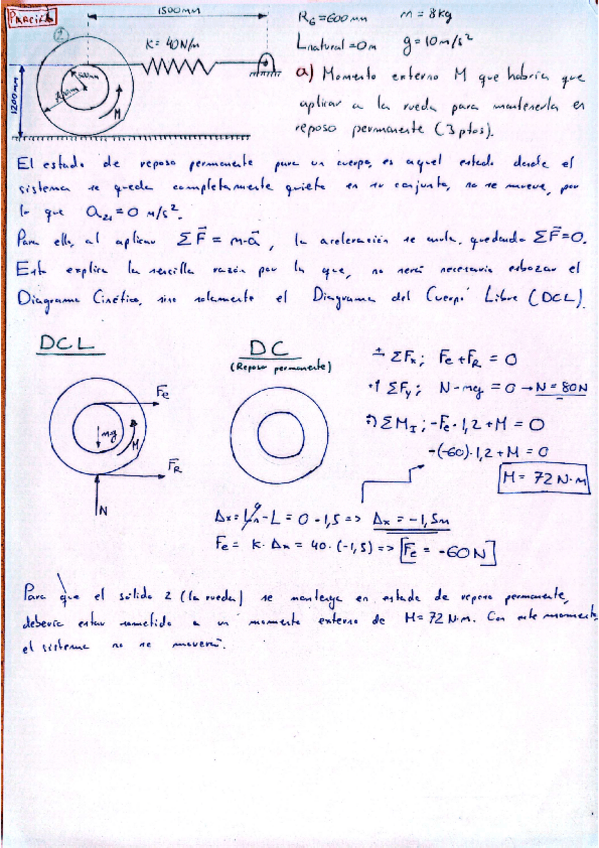 PARCIAL
1500mm
R_G=600mm m=8kg
2
K=40N/m
L natural=0m g=10m/s²
1200mm
M
a) Momento externo M que habría que
aplicar a la rueda para mantenerla en
reposo permanente (3 ptos).
El estado de reposo permanente para un cuerpo, es aquel estado donde el
sistema se queda completamente quieto en su conjunto, no se mueve, por
lo que a₂₁=0 m/s².
Para ello, al aplicar ΣF⃗ = m·a⃗, la aceleración se anula, quedando ΣF⃗=0.
Esto explica la sencilla razón por la que, no será necesario esbozar el
Diagrama Cinético, sino solamente el Diagrama del Cuerpo Libre (DCL).
DCL
DC
(Reposo permanente)
ΣFx; Fe+FR = 0
ΣFy; N-mg = 0 → N=80N
ΣM_I; -Fe·1,2+M = 0
-(-60)·1,2+M = 0
M = 72N·m
Fe
mg
M
FR
N
Δx = Ln-L = 0-1,5 => Δx = -1,5m
Fe = K·Δx = 40·(-1,5) => Fe = -60N
Para que el sólido 2 (la rueda) se mantenga en estado de reposo permanente,
debería estar sometido a un momento externo de M=72N·m. Con este momento,
el sistema no se moverá.